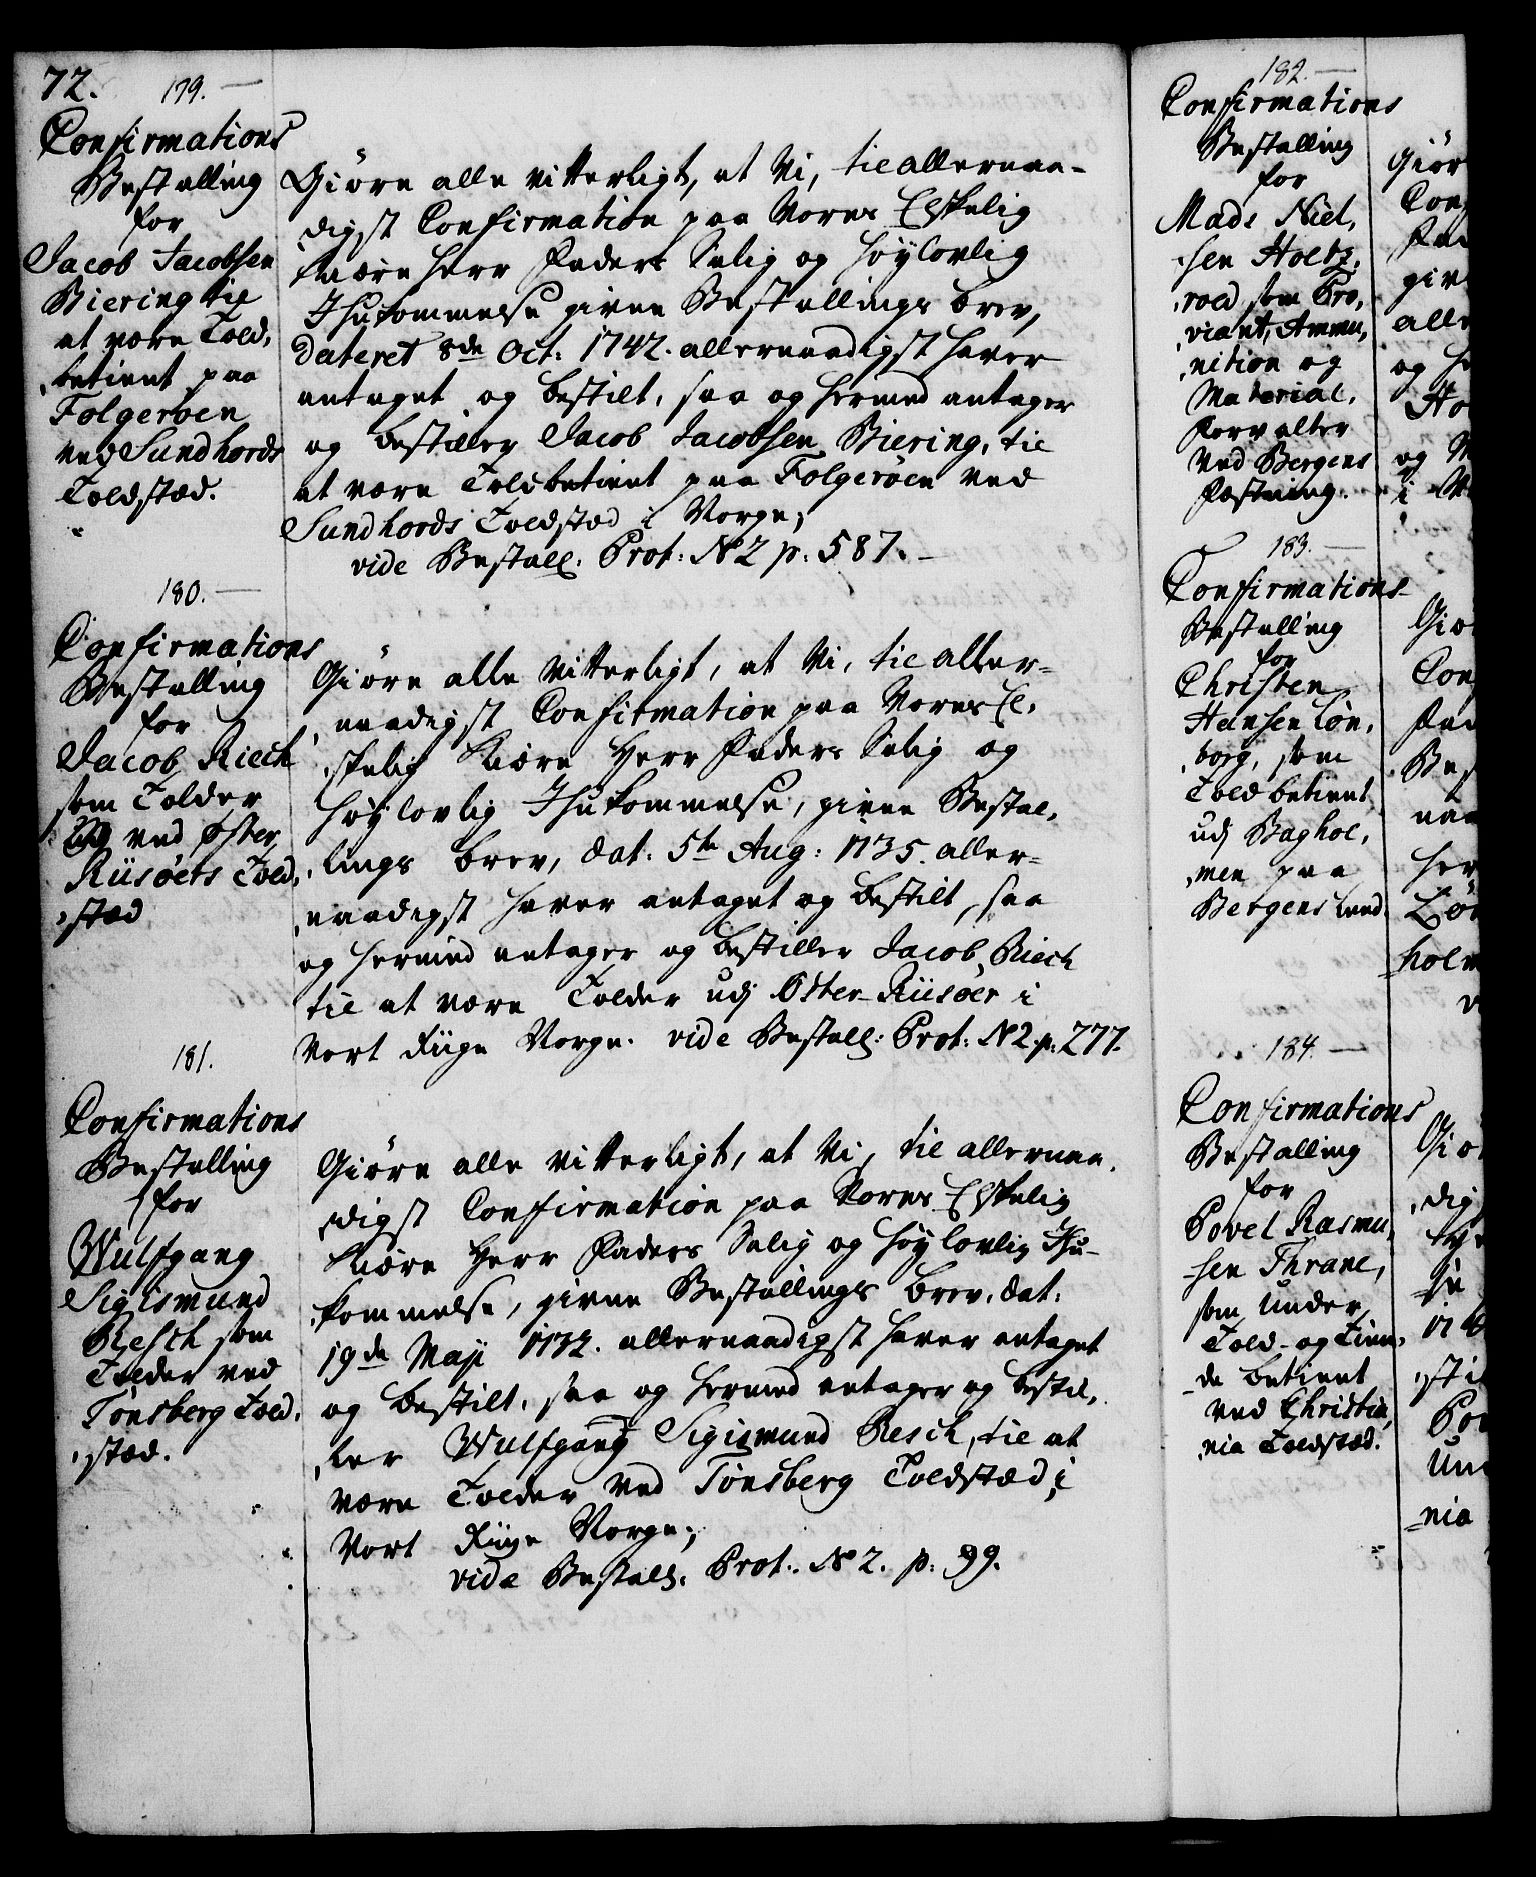 72.
179.
Confirmations
Bestalling
for
Jacob Jacobsen
Biering til
at være Told,
,betient paa
Folgeröen
ved Sundhords
Toldstæd.
Giöre alle vitterligt, at Vi, til allernaa-
digst Confirmation paa Vores Elskelig
kiære Herr Faders Salig og Höylovlig
Ihukommelse givne Bestallings brev,
dateret 8de Oct: 1742. allernaadigst haver
antaget og bestilt, saa og hermed antager
og bestiller Jacob Jacobsen Biering, til
at være Toldbetient paa Folgeröen ved
Sundhords Toldstæd i Norge;
vide Bestall: Prot: No 2 p. 587.
180.
Confirmations
Bestalling
for
Jacob Riech
som Tolder
ved Öster
Riisöers Told,
,stæd
Giöre alle vitterligt, at Vi, til aller-
,naadigst Confirmation paa Vores El,
,skelig kiære Herr Faders Salig og
Höylovlig Ihukommelse, givne Bestal,
,lings brev, dat: 5te Aug: 1735. aller-
,naadigst haver antaget og bestilt, saa
og hermed antager og bestiller Jacob Riech
til at være Tolder udj Öster-Riisöer i
Vort Riige Norge. vide Bestall: Prot: No 2. p. 277.
181.
Confirmations
Bestalling
for
Wulfgang
Sigismund
Resch som
Tolder ved
Tönsberg Told,
,stæd.
Giöre alle vitterligt, at Vi, til allernaa,
,digst Confirmation paa Vores Elskelig
kiære Herr Faders Salig og Höylovlig Ihu-
,kommelse, givne Bestallings brev, dat:
19de Maji 1732. allernaadigst haver antaget
og bestilt, saa og hermed antager og bestil,
,ler Wulfgang Sigismund Resch, til at
være Tolder ved Tönsberg Toldstæd i
Vort Riige Norge;
vide Bestall: Prot: No 2. p. 99.
182.
Confirmations
Bestalling
for
Mads Niel,
,sen Holtz,
,roed som Pro,
,viant, Ammu,
,nition og
Material,
Forvalter
ved Bergens
Fæstning.
183.
Confirmations
Bestalling
for
Christen
Hansen Lön,
,borg, som
Told betient
udj Baghol,
,men paa
Bergens land
184.
Confirmations
Bestalling
for
Povel Rasmu,
-sen Thrane,
som Under
Told- og Tien,
-de betient
ved Christia,
,nia Toldstæd.